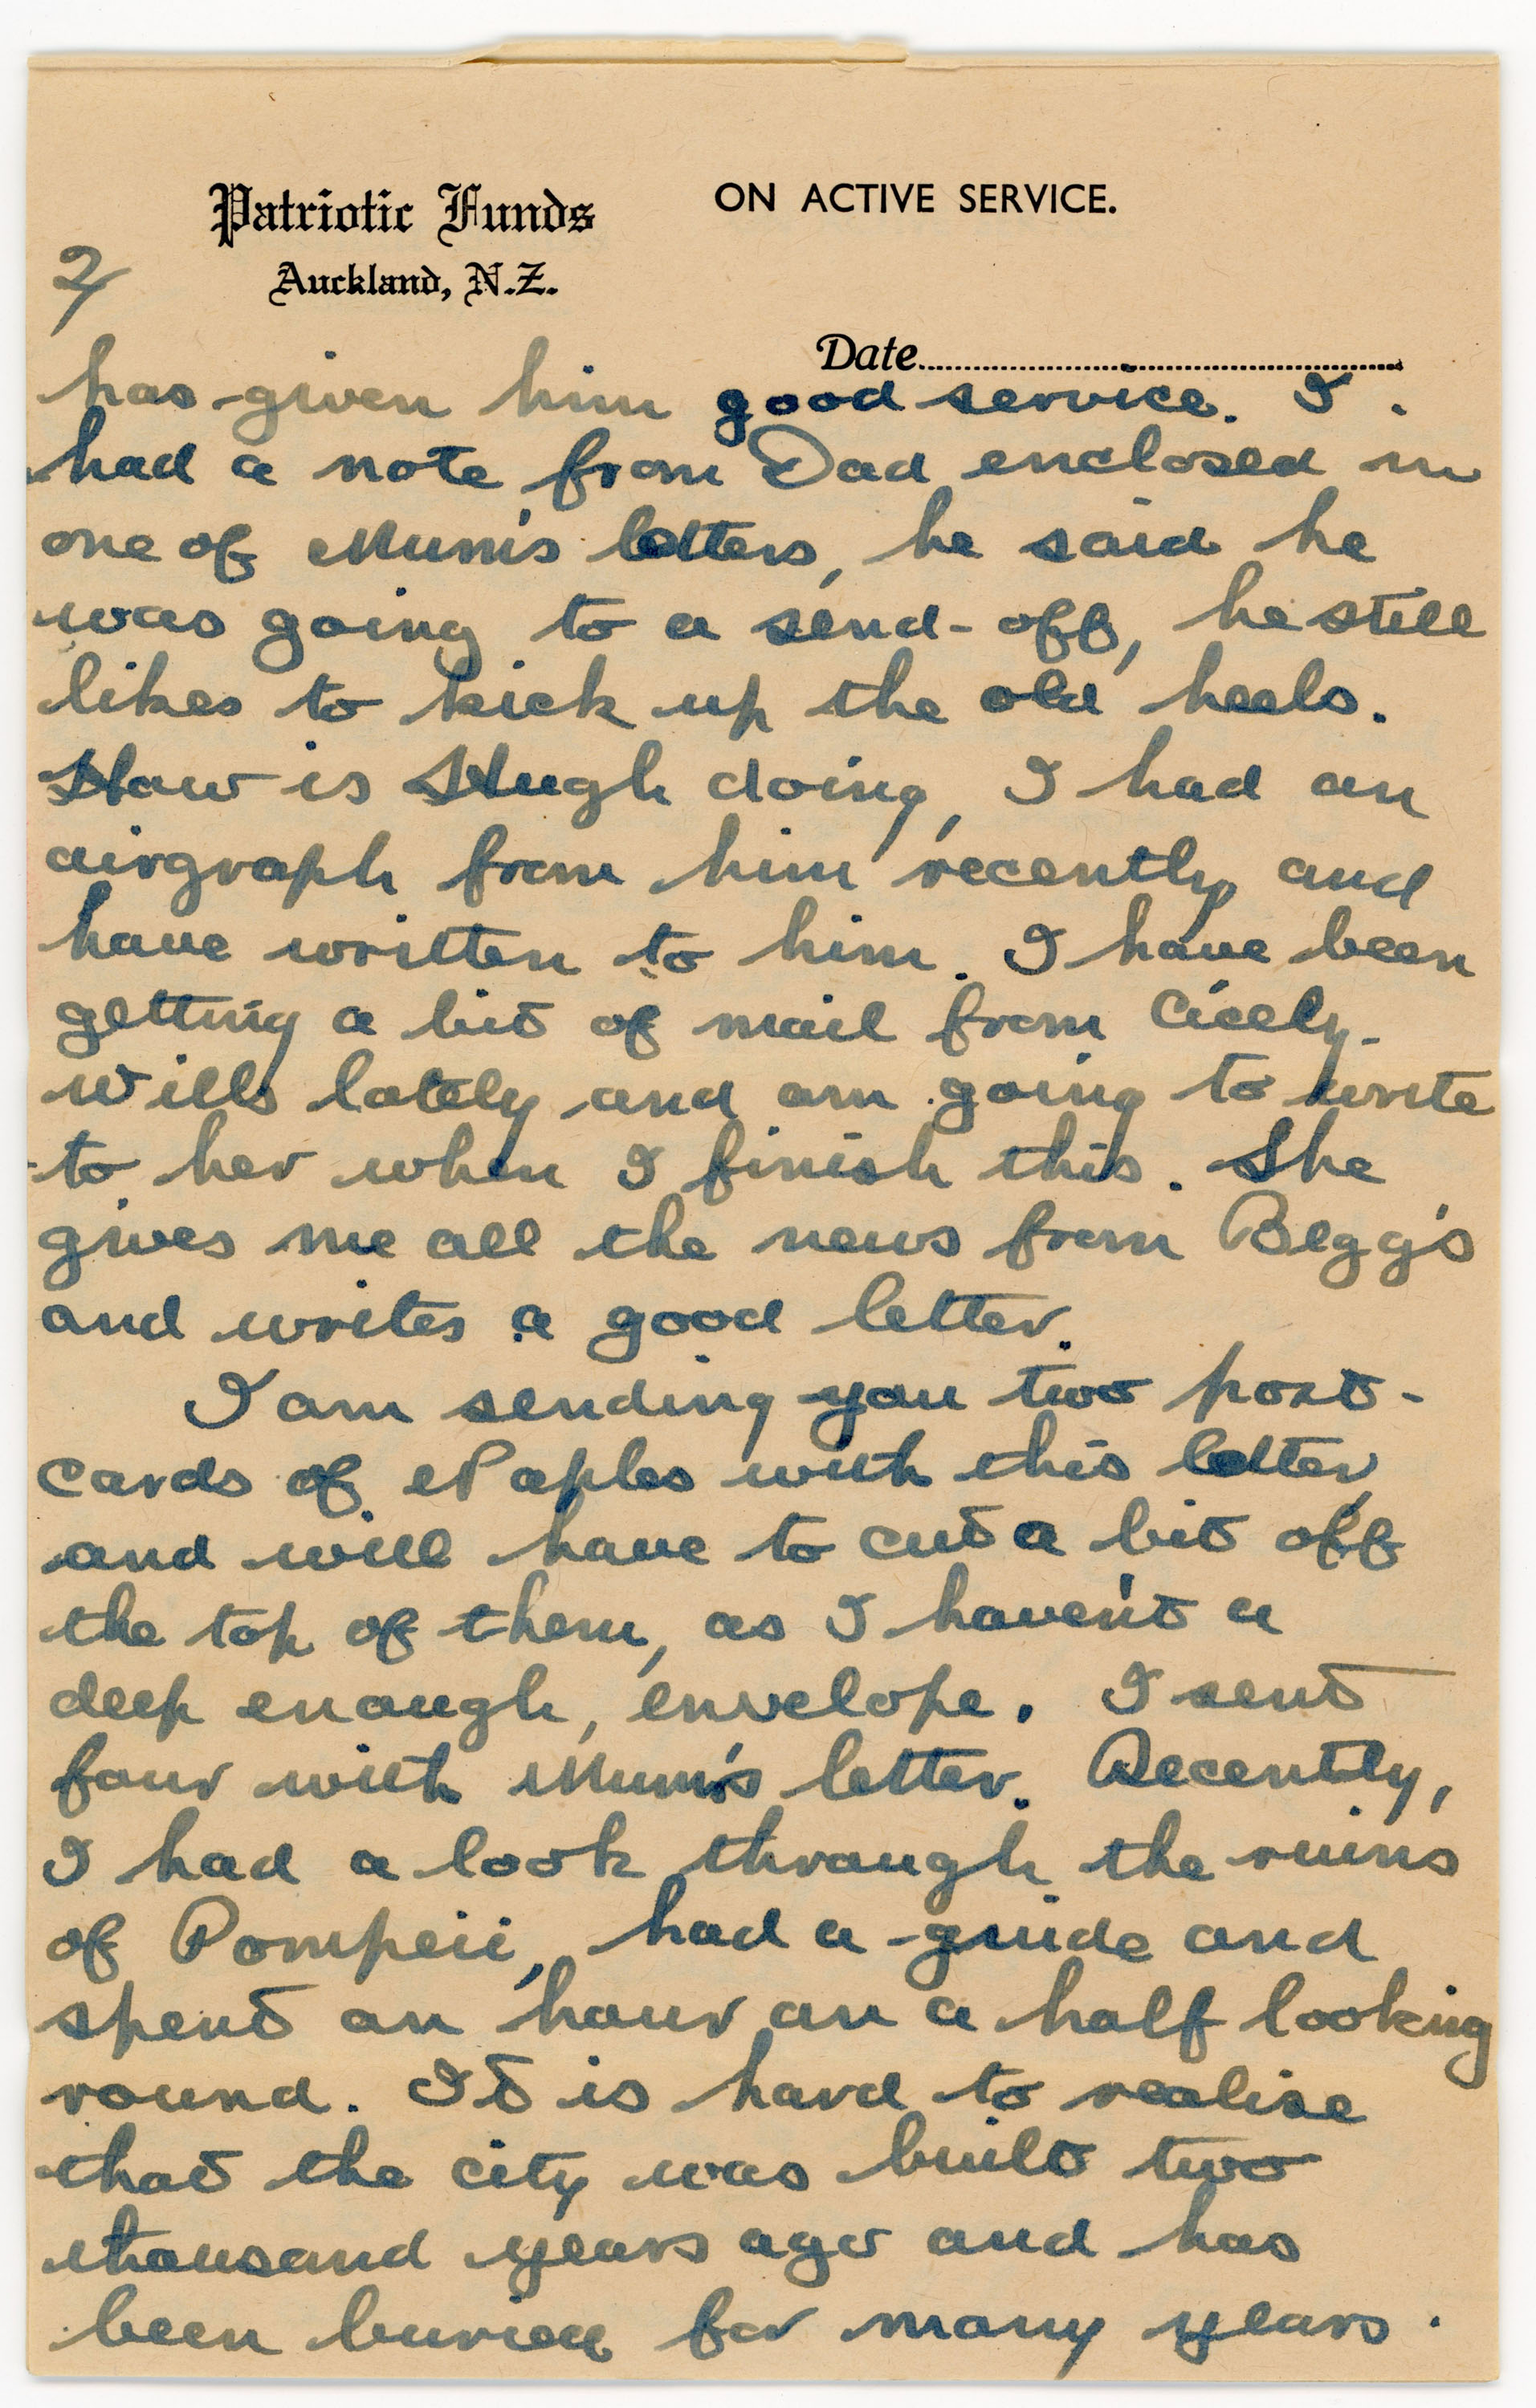 Patriotic Funds
Auckland, N.Z.
ON ACTIVE SERVICE.
2/
Date
has given him good service. I
had a note from Dad enclosed in
one of Mum's letters, he said he
was going to a send-off, he still
likes to kick up the old heels.
How is Hugh doing, I had an
airgraph from him recently and
have written to him. I have been
getting a bit of mail from Cicely
Wills lately and am going to write
to her when I finish this. She
gives me all the news from Begg's
and writes a good letter.
I am sending you two post-
cards of Naples with this letter,
and will have to cut a bit off
the top of them, as I haven't a
deep enough, envelope. I sent
four with Mum's letter. Recently,
I had a look through the ruins
of Pompeii, had a guide and
spent an hour an a half looking
round. It is hard to realise
that the city was built two
thousand years ago and has
been buried for many years.